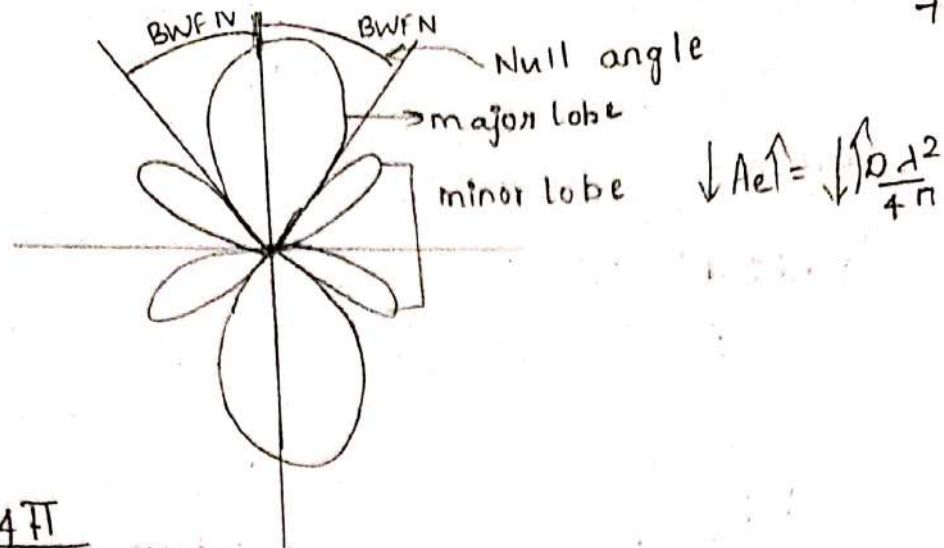 BWFN
BWFN
Null angle
major lobe
minor lobe
↓Ae↑ = ↓↑Dλ²/4π
4π